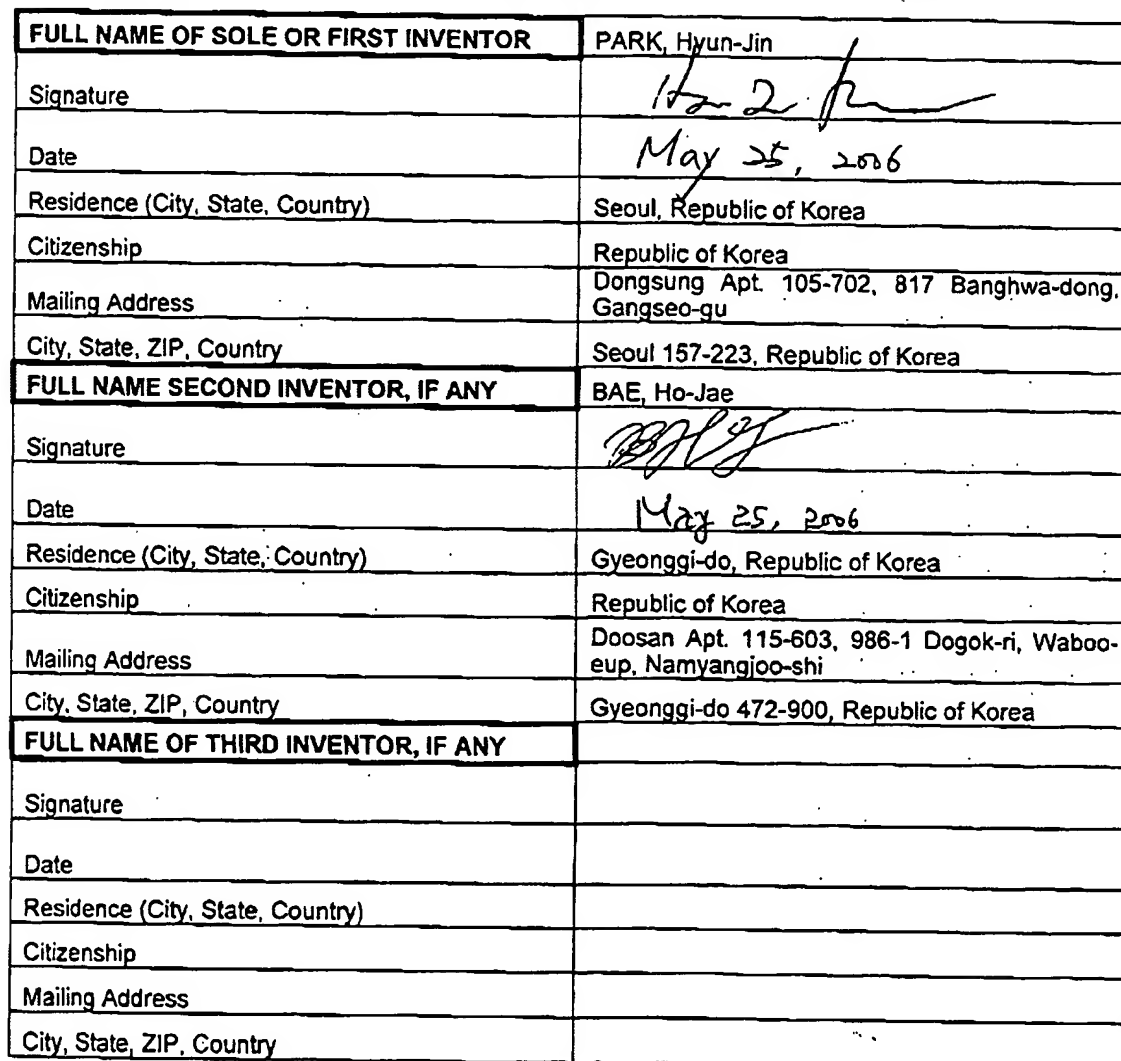 FULL NAME OF SOLE OR FIRST INVENTOR PARK, Hyun-Jin
Signature
Date May 25, 2006
Residence (City, State, Country) Seoul, Republic of Korea
Citizenship Republic of Korea
Mailing Address Dongsung Apt. 105-702, 817 Banghwa-dong,
Gangseo-gu
City, State, ZIP, Country Seoul 157-223, Republic of Korea
FULL NAME SECOND INVENTOR, IF ANY BAE, Ho-Jae
Signature
Date May 25, 2006
Residence (City, State, Country) Gyeonggi-do, Republic of Korea
Citizenship Republic of Korea
Mailing Address Doosan Apt. 115-603, 986-1 Dogok-ri, Waboo-
eup, Namyangjoo-shi
City, State, ZIP, Country Gyeonggi-do 472-900, Republic of Korea
FULL NAME OF THIRD INVENTOR, IF ANY
Signature
Date
Residence (City, State, Country)
Citizenship
Mailing Address
City, State, ZIP, Country